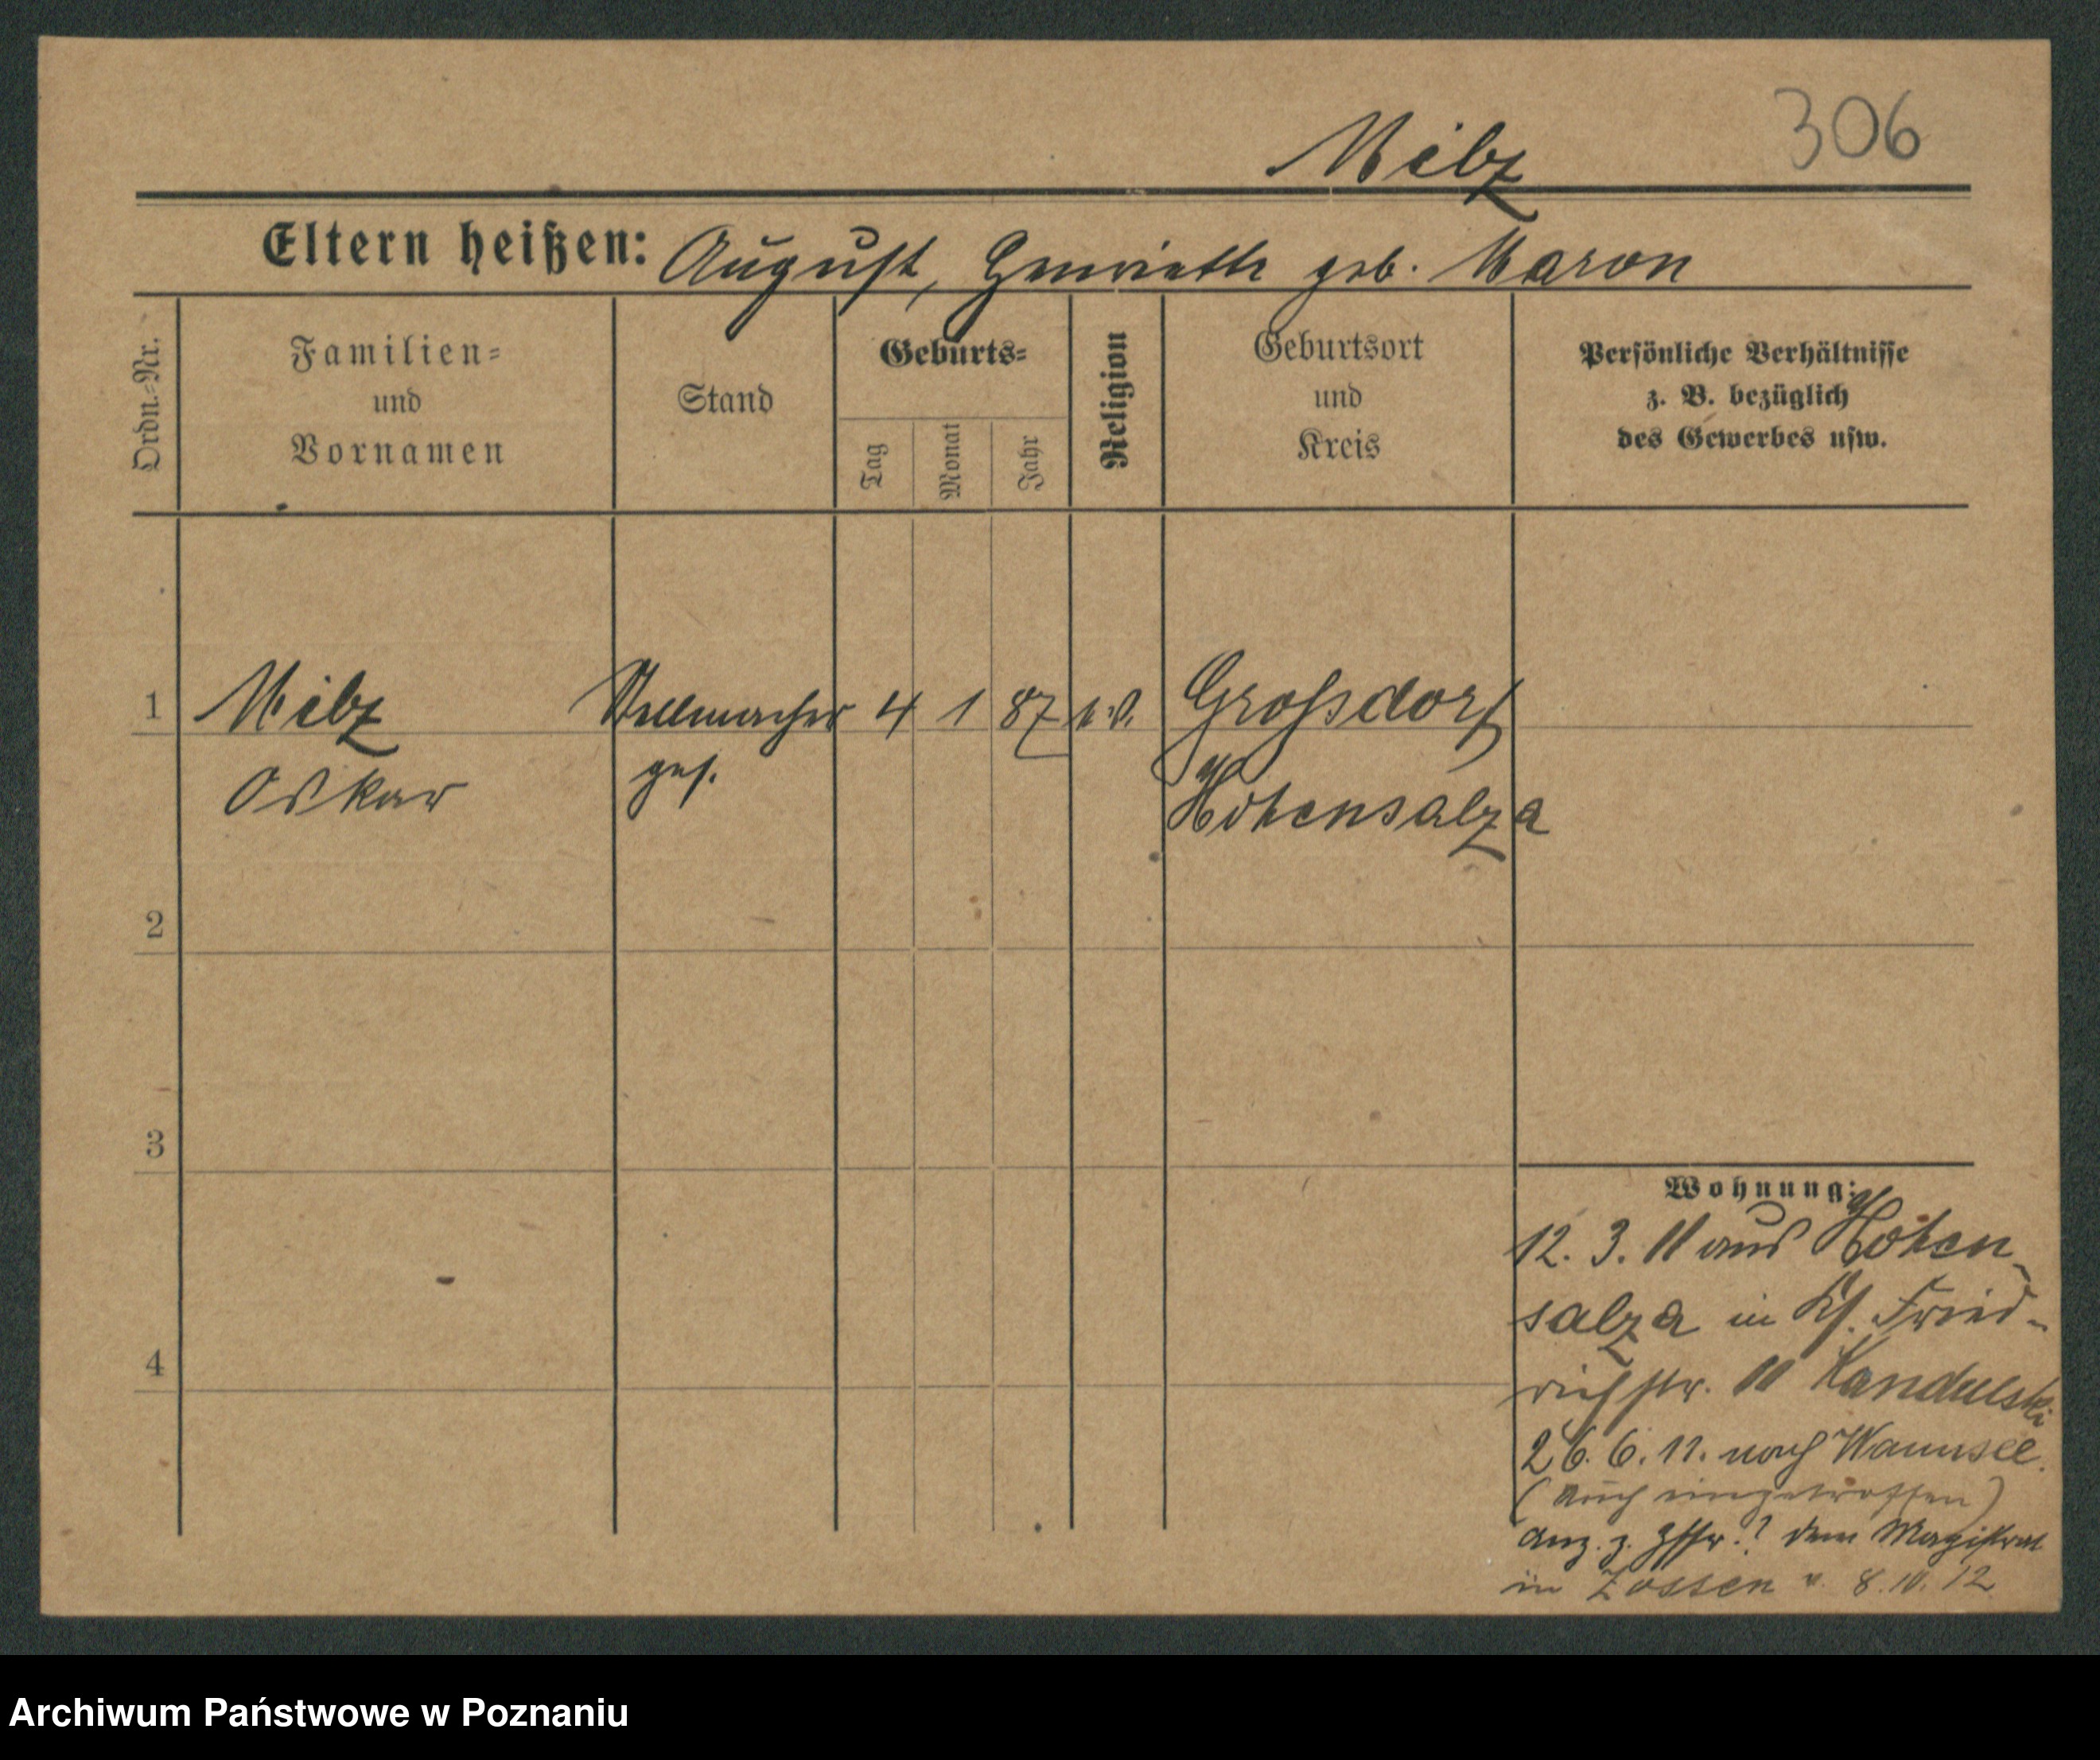 306
Milz
Eltern heißen: August, Henriette geb. Maron
Ordn.-Nr.
Familien-
und
Vornamen
Stand
Geburts-
Tag
Monat
Jahr
Religion
Geburtsort
und
Kreis
Persönliche Verhältnisse
z. B. bezüglich
des Gewerbes usw.
1 Milz Stellmacher 4 1 87 ev. Grossdorf
Oskar ges. Hohensalza
2
3
4
Wohnung:
12. 3. 11 aus Hohen-
salza in Fried-
richstr. 11 Kandulski
26. 6. 11. nach Wannsee.
(Auch eingetroffen)
Anz. z. dem Magistrat
in Zossen v. 8.10.12
Archiwum Państwowe w Poznaniu